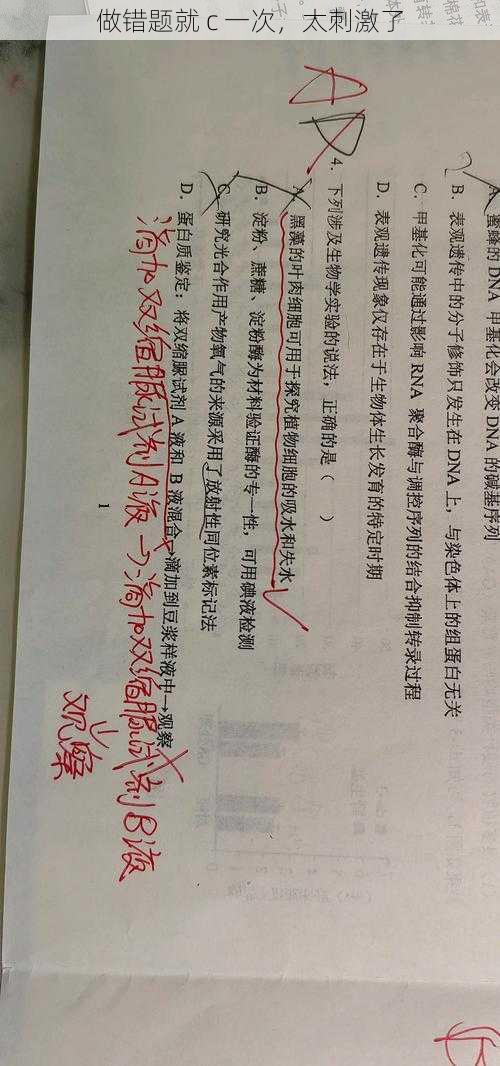 做错题就 c 一次，太刺激了
A. 蜜蜂的 DNA 甲基化会改变 DNA 的碱基序列
B. 表观遗传中的分子修饰只发生在 DNA 上，与染色体上的组蛋白无关
C. 甲基化可能通过影响 RNA 聚合酶与调控序列的结合抑制转录过程
D. 表观遗传现象仅存在于生物体生长发育的特定时期
A
D
4. 下列涉及生物学实验的说法，正确的是（ ）
A. 黑藻的叶肉细胞可用于探究植物细胞的吸水和失水
B. 淀粉、蔗糖、淀粉酶为材料验证酶的专一性，可用碘液检测
C. 研究光合作用产物氧气的来源采用了放射性同位素标记法
D. 蛋白质鉴定：将双缩脲试剂 A 液和 B 液混合→滴加到豆浆样液中→观察
滴加双缩脲试剂A液→滴加双缩脲试剂B液
↓
观察
1